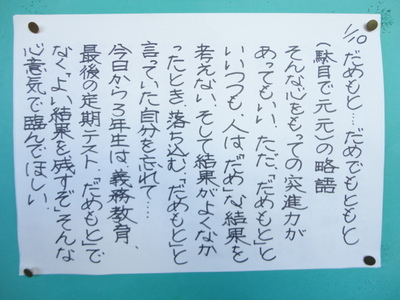 1/10 だめもと…だめでもともと
(駄目で元元)の略語
そんな心をもっての突進力が
あってもいい。ただ、「だめもと」と
いいつつも、人は「だめ」な結果を
考えない。そして結果がよくなか
ったとき、落ち込む。「だめもと」と
言っていた自分を忘れて…
今日から3年生は、義務教育、
最後の定期テスト。「だめもと」で
なく「よい結果を残すぞ」そんな
心意気で臨んでほしい。